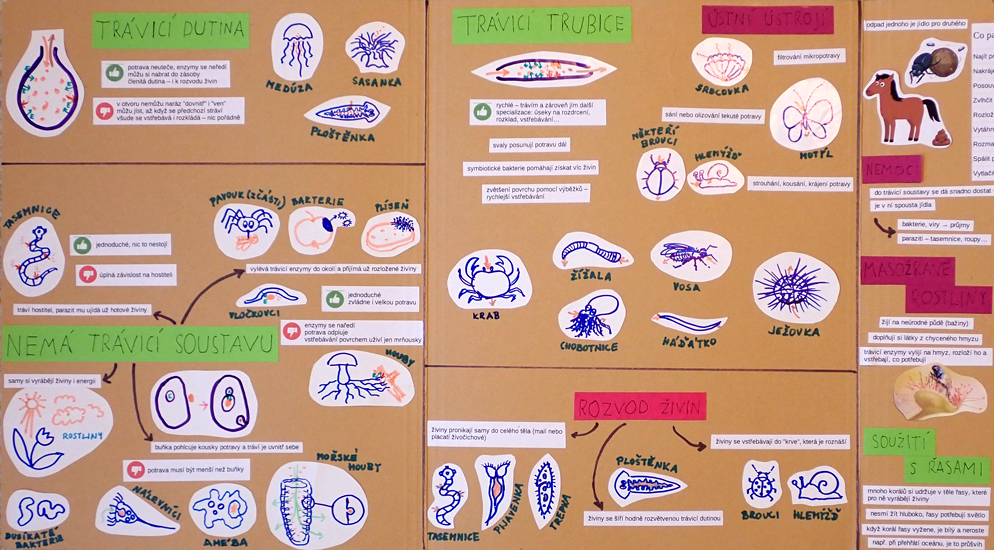 TRÁVICÍ DUTINA
potrava neuteče, enzymy se neředí
můžu si nabrat do zásoby
členitá dutina – i k rozvodu živin
v otvoru nemůžu naráz "dovnitř" i "ven"
můžu jíst, až když se předchozí stráví
všude se vstřebává i rozkládá – nic pořádně
MEDÚZA
SASANKA
PLOŠTĚNKA
TASEMNICE
jednoduché, nic to nestojí
úplná závislost na hostiteli
tráví hostitel, parazit mu ujídá už hotové živiny
PAVOUK (ZČÁSTI)
BAKTERIE
PLÍSEŇ
vylévá trávicí enzymy do okolí a přijímá už rozložené živiny
VLOČKOVCI
jednoduché
zvládne i velkou potravu
enzymy se naředí
potrava odpluje
vstřebávání povrchem uživí jen mrňousky
HOUBY
NEMÁ TRÁVICÍ SOUSTAVU
samy si vyrábějí živiny i energii
ROSTLINY
buňka pohlcuje kousky potravy a tráví je uvnitř sebe
potrava musí být menší než buňky
MOŘSKÉ
HOUBY
DUSÍKATÉ
BAKTERIE
NÁLEVNÍCI
AMÉBA
TRÁVICÍ TRUBICE
rychlé – trávím a zároveň jím další
specializace: úseky na rozdrcení,
rozklad, vstřebávání…
svaly posunují potravu dál
symbiotické bakterie pomáhají získat víc živin
zvětšení povrchu pomocí výběžků –
rychlejší vstřebávání
ÚSTNÍ ÚSTROJÍ
SRDCOVKA
filtrování mikropotravy
sání nebo olizování tekuté potravy
MOTÝL
NĚKTEŘÍ
BROUCI
HLEMÝŽĎ
strouhání, kousání, krájení potravy
KRAB
ŽÍŽALA
VOSA
JEŽOVKA
CHOBOTNICE
HÁĎÁTKO
ROZVOD ŽIVIN
živiny pronikají samy do celého těla (malí nebo
placatí živočichové)
TASEMNICE
PIJAVENKA
TREPKA
PLOŠTĚNKA
živiny se šíří hodně rozvětvenou trávicí dutinou
živiny se vstřebávají do "krve", která je roznáší
BROUCI
HLEMÝŽĎ
odpad jednoho je jídlo pro druhého
NEMOCI
do trávicí soustavy se dá snadno dostat
je v ní spousta jídla
bakterie, viry → průjmy
paraziti – tasemnice, roupy…
MASOŽRAVÉ
ROSTLINY
žijí na neúrodné půdě (bažiny)
doplňují si látky z chyceného hmyzu
trávicí enzymy vylijí na hmyz, rozloží ho a
vstřebají, co potřebují
SOUŽITÍ
S ŘASAMI
mnoho korálů si udržuje v těle řasy, které
pro ně vyrábějí živiny
nesmí žít hluboko, řasy potřebují světlo
když korál řasy vyžene, je bílý a neroste
např. při přehřátí oceánu, je to průšvih
Co pa
Najít p
Nakráje
Posouv
Zvlhčit
Rozlož
Vytáhn
Rozma
Spálit p
Vytlači